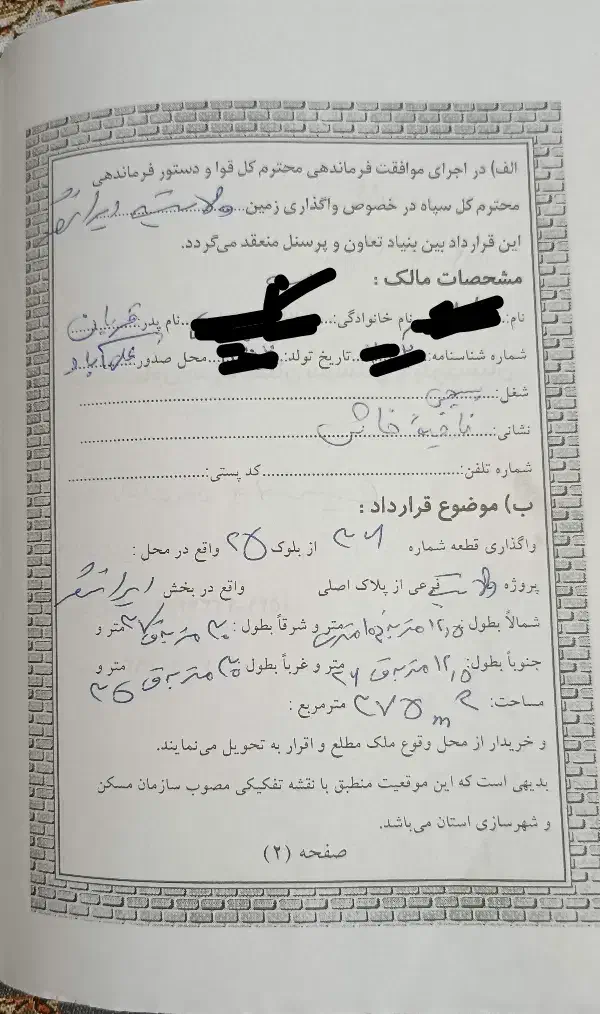 الف) در اجرای موافقت فرماندهی محترم کل قوا و دستور فرماندهی
محترم کل سپاه در خصوص واگذاری زمین ایرانشهر
این قرارداد بین بنیاد تعاون و پرسنل منعقد می‌گردد.
مشخصات مالک :
نام: نام خانوادگی: نام پدر
شماره شناسنامه: تاریخ تولد: محل صدور
شغل: بسیجی
نشانی: ناحیه خاش
شماره تلفن: کد پستی:
ب) موضوع قرارداد :
واگذاری قطعه شماره از بلوک واقع در محل :
پروژه فرعی از پلاک اصلی واقع در بخش ایرانشهر
شمالاً بطول: ۱۲,۵ متر و شرقاً بطول: ۳۰ متر به ق ۳۷ متر و
جنوباً بطول: ۱۲,۵ متر به ق متر و غرباً بطول: ۳۰ متر به ق ۳۵ متر و
مساحت: ۳۷۵ m۲ مترمربع :
و خریدار از محل وقوع ملک مطلع و اقرار به تحویل می‌نمایند.
بدیهی است که این موقعیت منطبق با نقشه تفکیکی مصوب سازمان مسکن
و شهرسازی استان می‌باشد.
صفحه (۲)